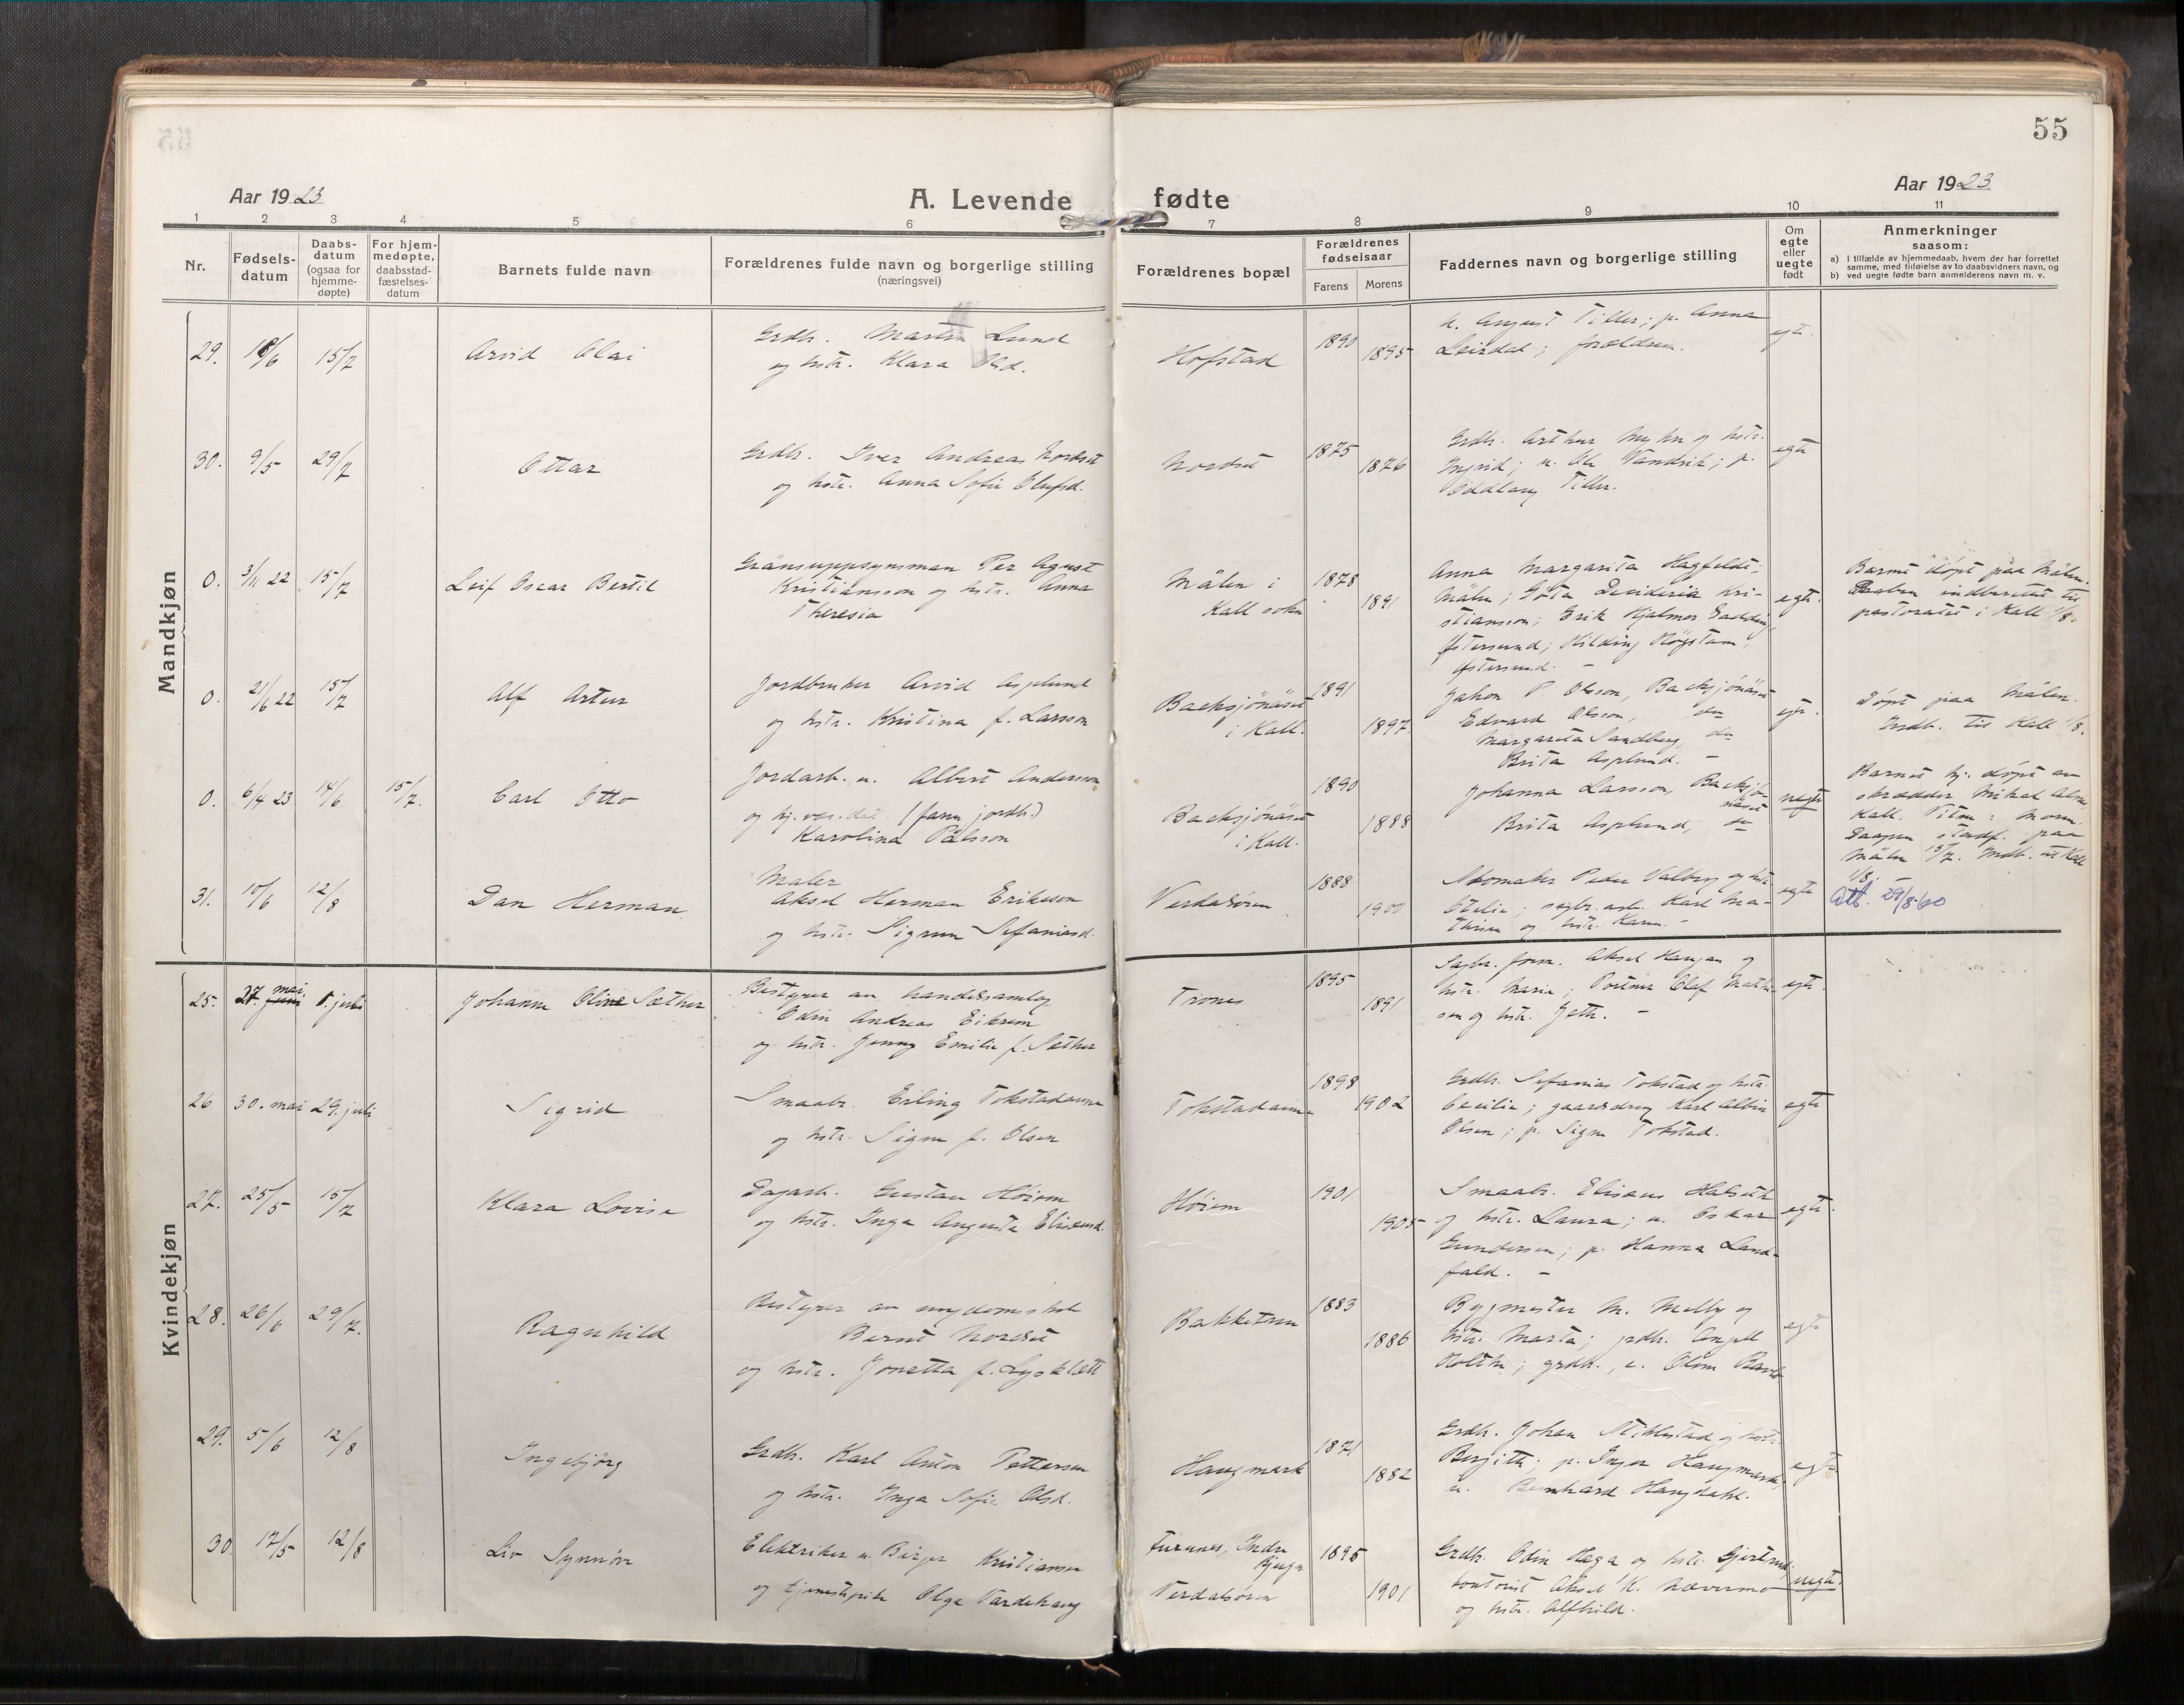 55
Aar 1923
A. Levende fødte
Aar 1923
1 2 3 4 5 6 7 8 9 10 11
Nr.
Fødsels-
datum
Daabs-
datum
(ogsaa for
hjemme-
døpte)
For hjem-
medøpte,
daabsstad-
fæstelses-
datum
Barnets fulde navn
Forældrenes fulde navn og borgerlige stilling
(næringsvei)
Forældrenes bopæl
Forældrenes
fødselsaar
Farens Morens
Faddernes navn og borgerlige stilling
Om
egte
eller
uegte
født
Anmerkninger
saasom:
a) i tilfælde av hjemmedaab, hvem der har forrettet
samme, med tilføielse av to daabsvidners navn, og
b) ved uegte fødte barn anmelderens navn m. v.
Mandkjøn
29. 15/7 Arvid Olai
Grdb. Martin Lund
og hstr. Klara Olsd.
Hofstad 1890 1895
u. August Tiller; p. Anna
Leirdal; forældrene.
egte.
30. 9/5 29/7 Ottar
Grdb. Iver Andreas Nordset
og hstr. Anna Sofie Olufsd.
Nordset 1875 1876
Grdb. Arthur Myhr og hstr.
Ingrid; u. Ole Vandvik; p.
Oddlaug Tiller.
egte
0. 3/11 22 15/7 Leif Oscar Bertil
Gränsuppsynsman Per Agust
Kristiansson og hstr. Anna
Theresia
Målen i
Kall sokn
1878 1891
Anna Margarita Hagfeldt,
Målen; Göta Desideria Kri-
stiansson; Erik Hjalmar
Östersund; Hilding Högstam,
Östersund. –
egte.
Barnet døpt paa Målen.
Daaben indberettet til
pastoratet i Kall 1/8.
0. 21/6 22 15/7 Alf Artur
Jordbruker Arvid Asplund
og hstr. Kristina f. Larson
Backsjönäset
i Kall.
1891 1897.
Jakon P. Olsson, Backsjönäset
Edvard Olsson, do
Margareta Sandberg, do
Brita Asplund. –
egte.
Døpt paa Målen.
Indb. til Kall 1/8.
0. 6/4 23 14/6 15/7. Carl Otto
Jordarb. u. Albert Anderson
og (farm jordb.)
Karolina Pålsson
Backsjönäset
i Kall.
1890 1888
Johanna Larsson, Backsjö-
näset
Brita Asplund, do
uegte
Barnet hj. døpt av
skrædder Mikal
Kall. Vitn: Morm.
Daapen stadf. paa
Målen 15/7. Indb. til Kall
1/8. –
31. 10/6 12/8 Dan Herman
Maler
Aksel Herman Erikson
og hstr. Sigrun Sefaniasd.
Verdalsøren 1888 1900
Skomaker Peder Valberg og hstr.
Otelie; sagbr.arb. Karl Ma-
thisen og hstr. Karen. –
egte
Att. 29/8-60
Kvindekjøn
25. 27. juni mai. 1. juli Johanne Oline Sæther
Bestyrer av handelssamlag
Odin Andreas Eikrem
og hstr. Jenny Emilie f. Sæther
Trones 1895 1891
Sagbr. form. Aksel Haugan og
hstr. Marie; Portner Olaf Mathi-
sen og hstr. –
egte.
26 30. mai 29. juli Sigrid
Smaabr. Erling Tokstadaunе
og hstr. Signe f. Olsen
Tokstadaune 1898 1902
Grdb. Sefanias Tokstad og hstr.
Cecilie; gaardsdreng Karl Albin
Olsen; p. Signe Tokstad.
egte
27. 25/5 15/7 Klara Lovise
Dagarb. Gustav Høiem
og hstr. Inga Augusta Elisæusd.
Høiem 1901 1905
Smaabr. Elisæus Halseth
og hstr. Laura; u. Oskar
Gundersen; p. Hanna Land-
fald. –
egte.
28. 26/6 29/7. Ragnhild
Bestyrer av ungdomsskole
Bernt Nordset
og hstr. Jonetta f. Lysklett
Bakketun 1883 1886
Bygmester M. Melby og
hstr. Marta; grdb. Angell
; grdb., e.
egte
29. 5/6 12/8 Ingebjörg
Grdb. Karl Anton Pettersen
og hstr. Inga Sofie Olsd.
Haugmark 1871 1882
Grdb. Johan Stiklestad og hstr.
Bergitte; p. Inger Haugmark;
u. Bernhard Haugdahl.
egte
30 17/5 12/8 Liv Synnöve
Elektriker u. Birger Kristiansen
og tjenestepike Olga Vardehaug
Furunes, Indre
Bjugn
Verdalsøren
1895 1901
Grdb. Odin Haga og hstr. Gjertrud;
kontorist Aksel K. Næverma
og hstr. Alfhild.
uegte.